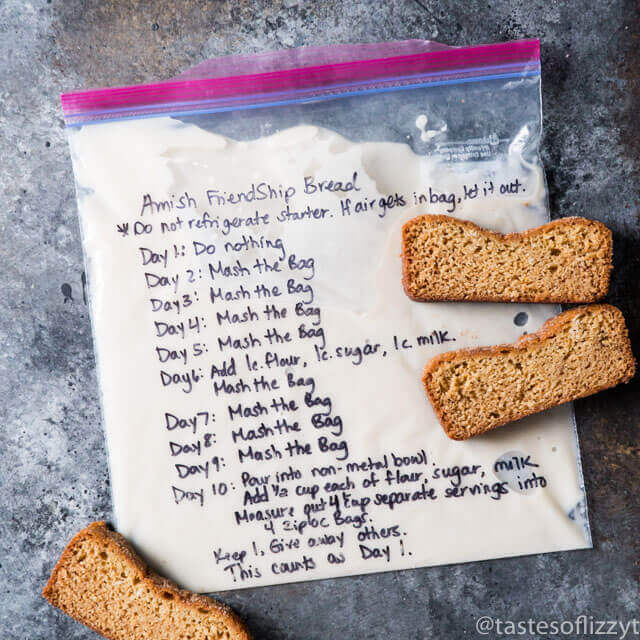 Amish FriendShip Bread
* Do not refrigerate starter. If air gets in bag, let it out.
Day 1: Do nothing
Day 2: Mash the Bag
Day 3: Mash the Bag
Day 4: Mash the Bag
Day 5: Mash the Bag
Day 6: Add 1c. flour, 1c. sugar, 1c. milk.
Mash the Bag
Day 7: Mash the Bag
Day 8: Mash the Bag
Day 9: Mash the Bag
Day 10: Pour into non-metal bowl.
Add 1/2 cup each of flour, sugar, milk
Measure out 4 separate servings into
4 ziploc Bags.
Keep 1, Give away others.
This counts as Day 1.
@tastesoflizzyt